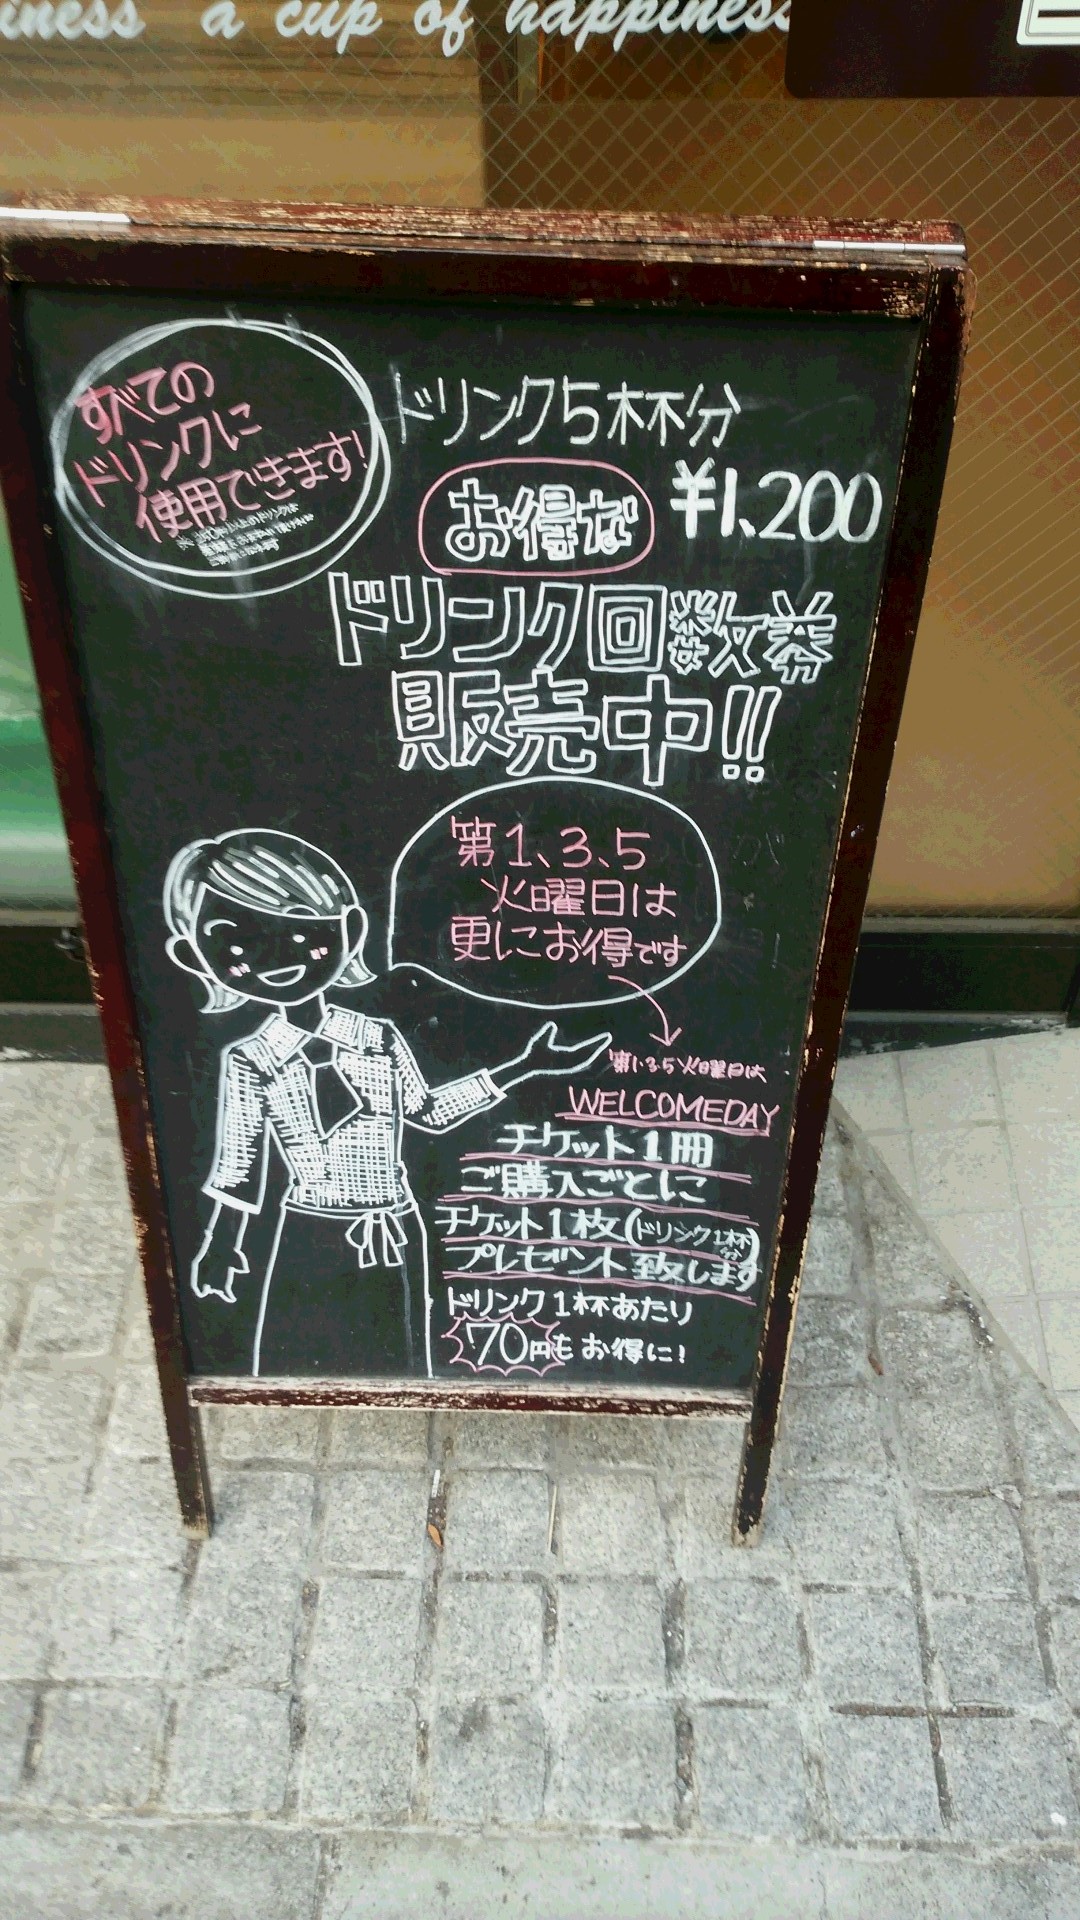 iness a cup of happiness
すべての
ドリンクに
使用できます!
ドリンク5杯分
¥1,200
お得な
ドリンク回数券
販売中!!
第1、3、5
火曜日は
更にお得です
第1・3・5火曜日は
WELCOMEDAY
チケット1冊
ご購入ごとに
チケット1枚(ドリンク1杯分)
プレゼント致します
ドリンク1杯あたり
70円もお得に!